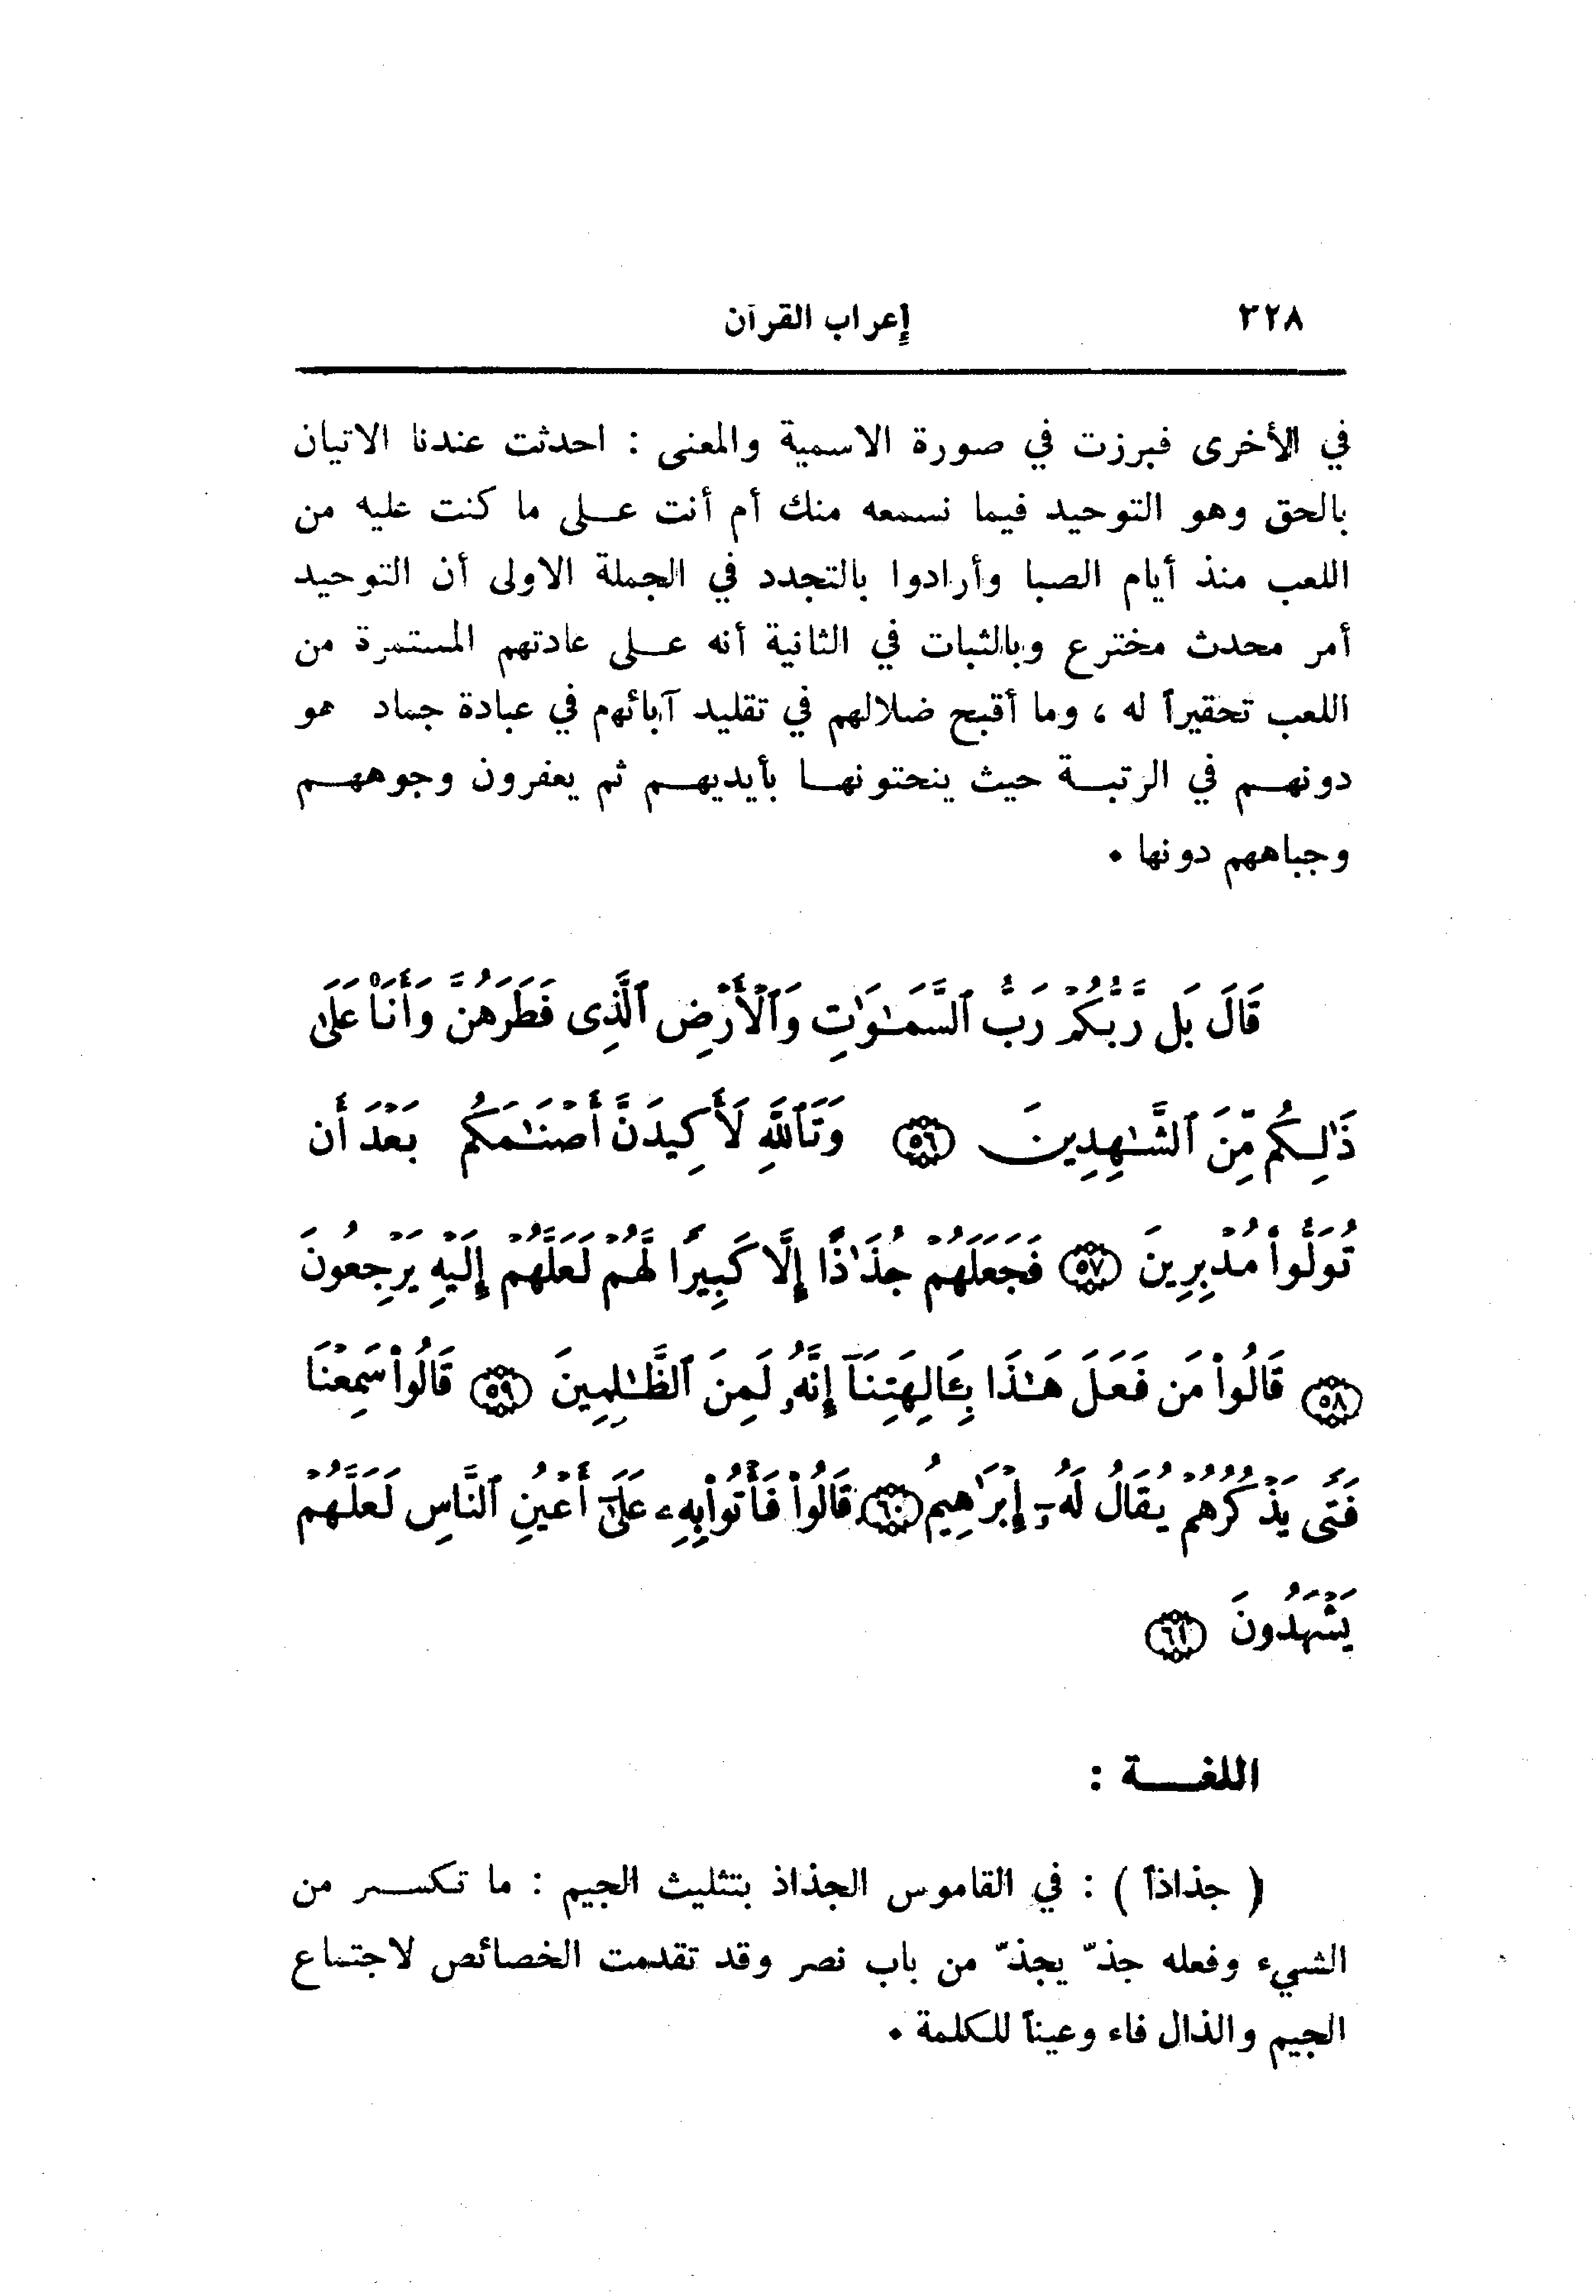 ٣٢٨ إعراب القرآن
في الأخرى فبرزت في صورة الاسمية والمعنى : احدثت عندنا الاتيان
بالحق وهو التوحيد فيما نسمعه منك أم أنت عـلى ما كنت عليه من
اللعب منذ أيام الصبا وأرادوا بالتجدد في الجملة الاولى أن التوحيد
أمر محدث مخترع وبالثبات في الثانية أنه عـلى عادتهم المستمرة من
اللعب تحقيراً له ، وما أقبح ضلالهم في تقليد آبائهم في عبادة جماد هو
دونهـم في الرتبـة حيث ينحتونهـا بأيديهـم ثم يعفرون وجوههـم
وجباههم دونها .
قَالَ بَل رَّبُّكُمْ رَبُّ ٱلسَّمَـٰوَٰتِ وَٱلْأَرْضِ ٱلَّذِى فَطَرَهُنَّ وَأَنَا۠ عَلَىٰ
ذَٰلِكُم مِّنَ ٱلشَّـٰهِدِينَ ٥٦ وَتَٱللَّهِ لَأَكِيدَنَّ أَصْنَـٰمَكُم بَعْدَ أَن
تُوَلُّوا۟ مُدْبِرِينَ ٥٧ فَجَعَلَهُمْ جُذَٰذًا إِلَّا كَبِيرًا لَّهُمْ لَعَلَّهُمْ إِلَيْهِ يَرْجِعُونَ
٥٨ قَالُوا۟ مَن فَعَلَ هَـٰذَا بِـَٔالِهَتِنَآ إِنَّهُۥ لَمِنَ ٱلظَّـٰلِمِينَ ٥٩ قَالُوا۟ سَمِعْنَا
فَتًى يَذْكُرُهُمْ يُقَالُ لَهُۥٓ إِبْرَٰهِيمُ ٦٠ قَالُوا۟ فَأْتُوا۟ بِهِۦ عَلَىٰٓ أَعْيُنِ ٱلنَّاسِ لَعَلَّهُمْ
يَشْهَدُونَ ٦١
اللغـــة :
( جذاذاً ) : في القاموس الجذاذ بتثليث الجيم : ما تكسـر من
الشيء وفعله جذّ يجذّ من باب نصر وقد تقدمت الخصائص لاجتماع
الجيم والذال فاء وعيناً للكلمة .